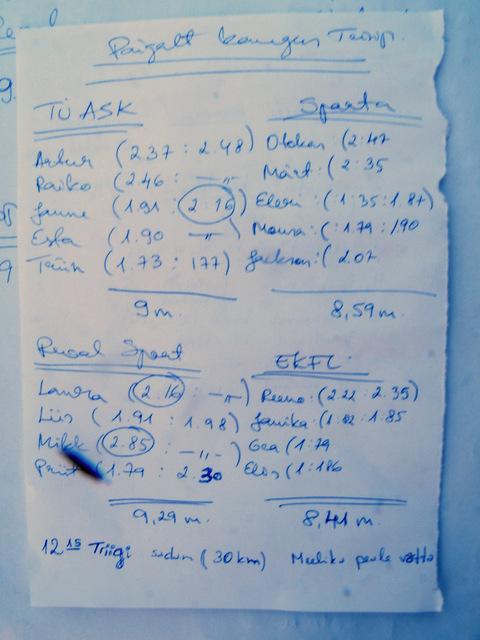 Paigalt kaugus
TÜ ASK
Artur (2.37 : 2.48)
Raiko (2.46 : —"—
Janne (1.91 : 2.16)
Esta (1.90 —"—
(1.73 : 177)
9 m.
Sparta
(2.47
Märt: (2.35
Eleri: (1.35 : 1.87)
(1.79 : 1.90
Jackson: (2.07
8,59 m.
Reval Sport
Laura (2.16 : —"—)
Liis (1.91 : 1.98)
Mihk (2.85 : —"—)
Priit (1.79 : 2.30
9,29 m.
EKFL
(2.22 : 2.35)
Janika: (1.82 : 1.85
Gea (1.79
(1.186
8,41 m.
12 15 Triigi sadam (30 km)